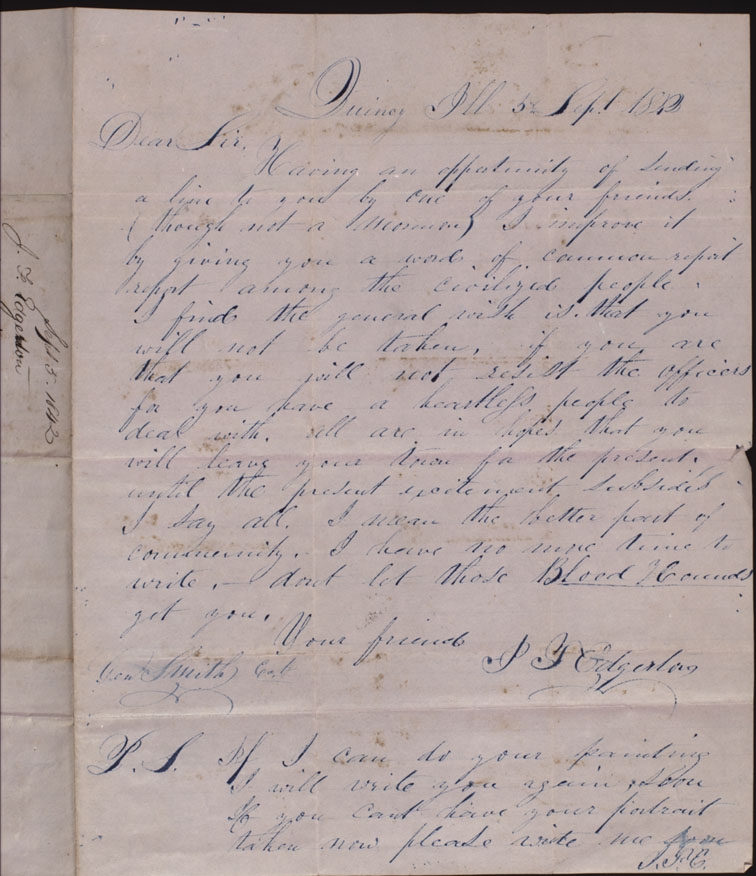 Quincy Ill 5th Sept 1842
Dear Sir.
Having an opportunity of sending
a line to you by one of your friends.
(though not a Mormon) I improve it
by giving you a word of common report
report among the civilized people.
I find the general wish is that you
will not be taken, if you are
that you will not resist the officers
for you have a heartless people to
deal with. all are in hopes that you
will leave your town for the present.
until the present excitement subsides
I say all. I mean the better part of
community. I have no more time to
write. – dont let those Blood Hounds
get you.
Your friend
J F Edgerton
Gen Smith Esq
P.S. If I can do your painting
I will write you again soon
If you cant have your portrait
taken now please write me soon
J.F.E.
J. F. Edgerton
Sept 5. 1842